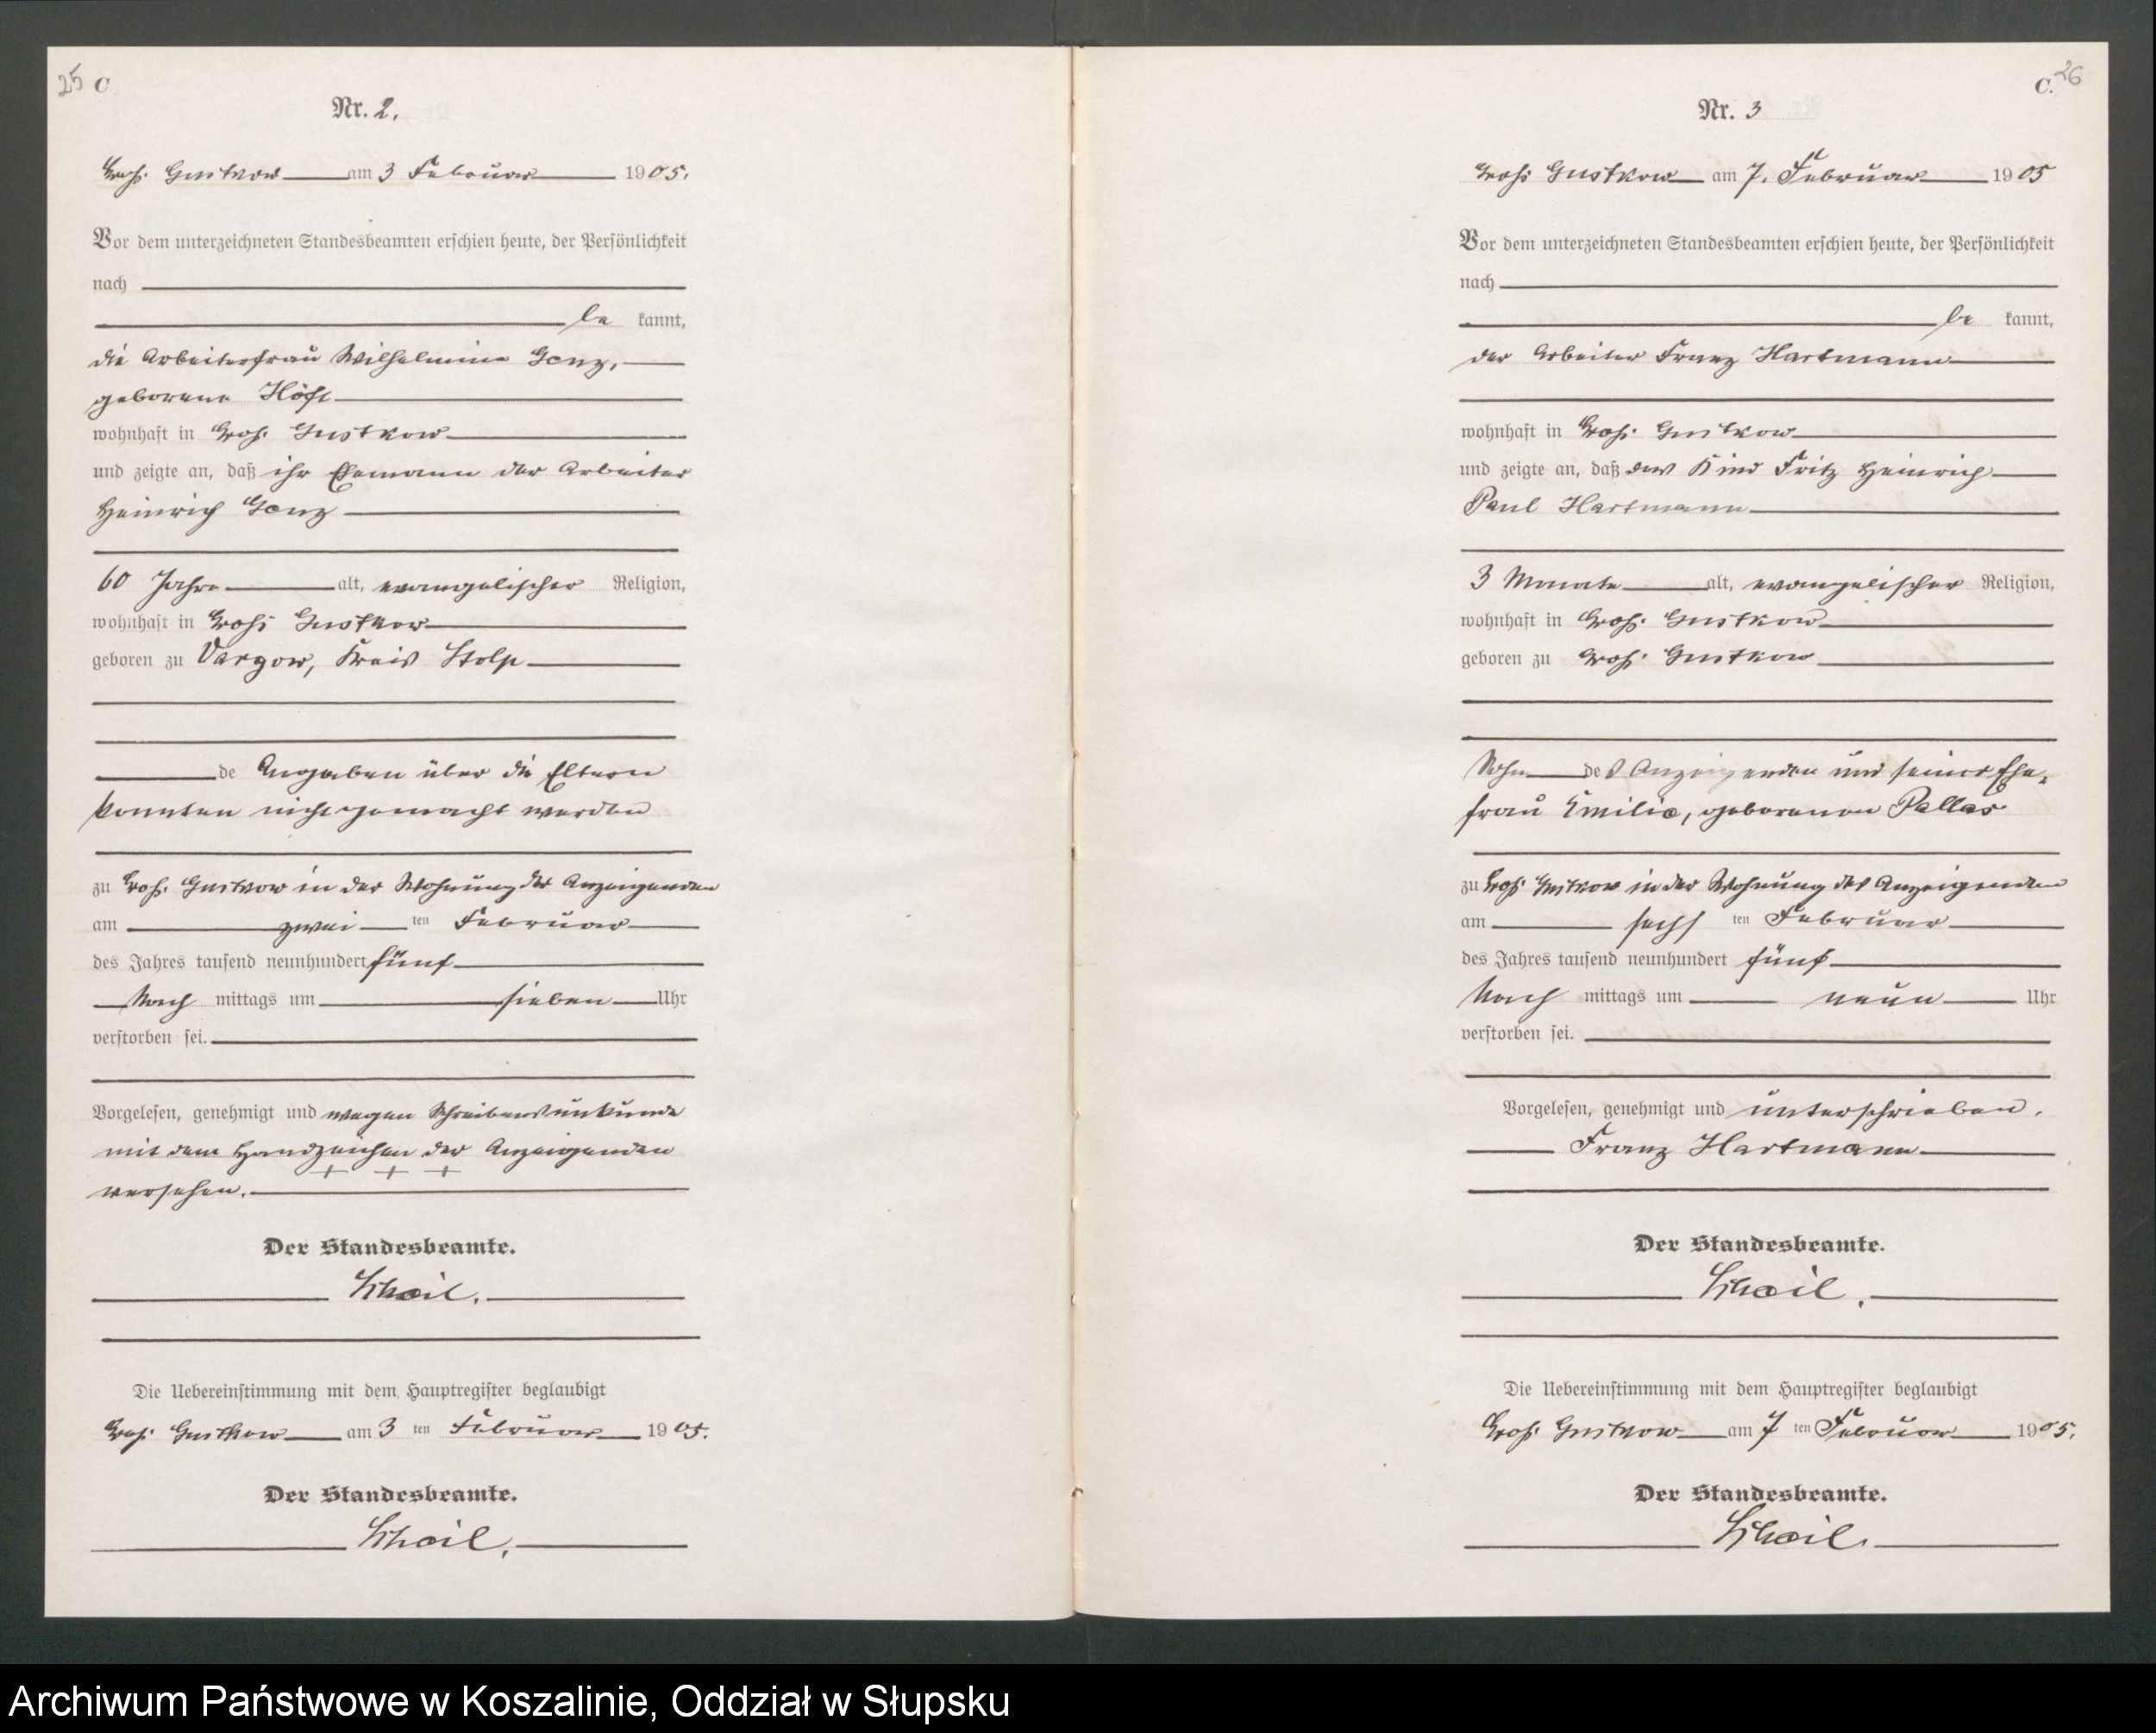 25 C
Nr. 2.
Groß Gustkow am 3 Februar 1905.
Vor dem unterzeichneten Standesbeamten erschien heute, der Persönlichkeit
nach
be kannt,
die Arbeiterfrau Wilhelmine
geborene Höft
wohnhaft in Groß Gustkow
und zeigte an, daß ihr Ehemann der Arbeiter
Heinrich
60 Jahre alt, evangelischer Religion,
wohnhaft in Groß Gustkow
geboren zu Vargow, Kreis Stolp
de Angaben über die Eltern
konnten nicht gemacht werden
zu Groß Gustkow in der Wohnung der Anzeigenden
am zwei ten Februar
des Jahres tausend neunhundert fünf
Nach mittags um sieben Uhr
verstorben sei.
Vorgelesen, genehmigt und wegen Schreibensunkunde
mit dem Handzeichen der Anzeigenden
+ + +
versehen.
Der Standesbeamte.
Die Uebereinstimmung mit dem Hauptregister beglaubigt
Groß Gustkow am 3 ten Februar 1905.
Der Standesbeamte.
C. 26
Nr. 3
Groß Gustkow am 7. Februar 1905
Vor dem unterzeichneten Standesbeamten erschien heute, der Persönlichkeit
nach
be kannt,
der Arbeiter Franz Hartmann
wohnhaft in Groß Gustkow
und zeigte an, daß das Kind Fritz Heinrich
Paul Hartmann
3 Monate alt, evangelischer Religion,
wohnhaft in Groß Gustkow
geboren zu Groß Gustkow
Sohn des Anzeigenden und seiner Ehe-
frau Emilie, geborenen Pallas
zu Groß Gustkow in der Wohnung des Anzeigenden
am sechs ten Februar
des Jahres tausend neunhundert fünf
Nach mittags um neun Uhr
verstorben sei.
Vorgelesen, genehmigt und unterschrieben.
Franz Hartmann
Der Standesbeamte.
Die Uebereinstimmung mit dem Hauptregister beglaubigt
Groß Gustkow am 7 ten Februar 1905.
Der Standesbeamte.
Archiwum Państwowe w Koszalinie, Oddział w Słupsku